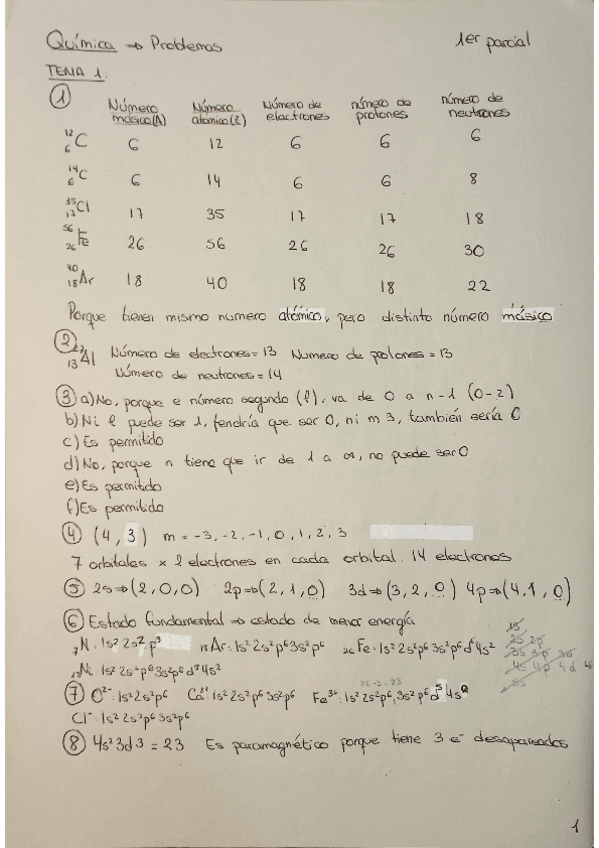 Química → Problemas 1er parcial
TEMA 1:
① Número másico(A) Número atómico(Z) Número de electrones número de protones número de neutrones
¹²₆C 6 12 6 6 6
¹⁴₆C 6 14 6 6 8
³⁵₁₇Cl 17 35 17 17 18
⁵⁶₂₆Fe 26 56 26 26 30
⁴⁰₁₈Ar 18 40 18 18 22
Porque tienen mismo numero atómico, pero distinto número másico
② ²⁷₁₃Al Número de electrones = 13 Numero de protones = 13
Número de neutrones = 14
③ a) No, porque e número segundo (l), va de 0 a n-1 (0-2)
b) Ni l puede ser 1, tendría que ser 0, ni m 3, también sería 0
c) Es permitido
d) No, porque n tiene que ir de 1 a ∞, no puede ser 0
e) Es permitido
f) Es permitido
④ (4, 3) m = -3, -2, -1, 0, 1, 2, 3
7 orbitales x 2 electrones en cada orbital. 14 electrones
⑤ 2s ⇒ (2, 0, 0) 2p ⇒ (2, 1, 0) 3d ⇒ (3, 2, 0) 4p ⇒ (4, 1, 0)
⑥ Estado fundamental → estado de menor energía
₇N: 1s² 2s² p³ ₁₈Ar: 1s² 2s² p⁶ 3s² p⁶ ₂₆Fe: 1s² 2s² p⁶ 3s² p⁶ d⁶ 4s²
Ni: 1s² 2s² p⁶ 3s² p⁶ d⁸ 4s²
⑦ O²⁻: 1s² 2s² p⁶ Ca²⁺: 1s² 2s² p⁶ 3s² p⁶ Fe³⁺: 1s² 2s² p⁶, 3s² p⁶ d⁵ 4s⁰
Cl⁻: 1s² 2s² p⁶ 3s² p⁶
⑧ 4s² 3d³ = 23 Es paramagnético porque tiene 3 e⁻ desapareados
1